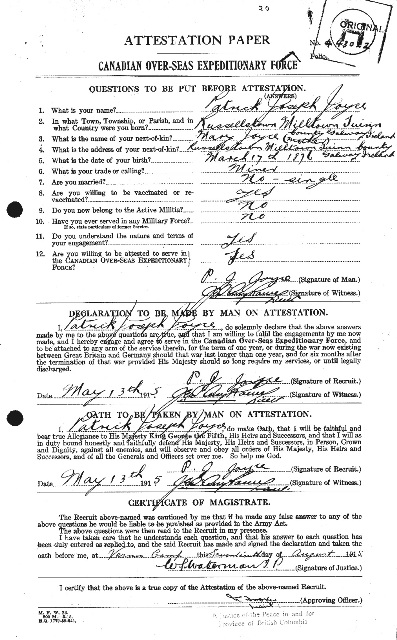 20
ORIGINAL
ATTESTATION PAPER
No.
Folio.
CANADIAN OVER-SEAS EXPEDITIONARY FORCE
QUESTIONS TO BE PUT BEFORE ATTESTATION.
(ANSWERS)
1. What is your name? Patrick Joseph Joyce
2. In what Town, Township, or Parish, and in what Country were you born? Russellstown Milltown Tuam County Galway Ireland
3. What is the name of your next-of-kin? Mary Joyce (Mother)
4. What is the address of your next-of-kin? Russellstown Milltown Tuam County Galway Ireland
5. What is the date of your birth? March 17th 1876
6. What is your trade or calling? Miner
7. Are you married? No - single
8. Are you willing to be vaccinated or re-vaccinated? Yes
9. Do you now belong to the Active Militia? No
10. Have you ever served in any Military Force? No
If so, state particulars of former Service.
11. Do you understand the nature and terms of your engagement? Yes
12. Are you willing to be attested to serve in the CANADIAN OVER-SEAS EXPEDITIONARY FORCE? Yes
P. J. Joyce (Signature of Man.)
(Signature of Witness.)
DECLARATION TO BE MADE BY MAN ON ATTESTATION.
I, Patrick Joseph Joyce, do solemnly declare that the above answers
made by me to the above questions are true, and that I am willing to fulfil the engagements by me now
made, and I hereby engage and agree to serve in the Canadian Over-Seas Expeditionary Force, and
to be attached to any arm of the service therein, for the term of one year, or during the war now existing
between Great Britain and Germany should that war last longer than one year, and for six months after
the termination of that war provided His Majesty should so long require my services, or until legally
discharged.
P. J. Joyce (Signature of Recruit.)
Date May 13th 1915 (Signature of Witness)
OATH TO BE TAKEN BY MAN ON ATTESTATION.
I, Patrick Joseph Joyce, do make Oath, that I will be faithful and
bear true Allegiance to His Majesty King George the Fifth, His Heirs and Successors, and that I will as
in duty bound honestly and faithfully defend His Majesty, His Heirs and Successors, in Person, Crown
and Dignity, against all enemies, and will observe and obey all orders of His Majesty, His Heirs and
Successors, and of all the Generals and Officers set over me. So help me God.
P. J. Joyce (Signature of Recruit.)
Date May 13th 1915 (Signature of Witness)
CERTIFICATE OF MAGISTRATE.
The Recruit above-named was cautioned by me that if he made any false answer to any of the above
questions he would be liable to be punished as provided in the Army Act.
The above questions were then read to the Recruit in my presence.
I have taken care that he understands each question, and that his answer to each question has
been duly entered as replied to, and the said Recruit has made and signed the declaration and taken the
oath before me, at Vernon Camp this day of August 1915
J.P. (Signature of Justice)
I certify that the above is a true copy of the Attestation of the above-named Recruit.
(Approving Officer.)
M. F. W. 23.
A Justice of the Peace in and for
Province of British Columbia